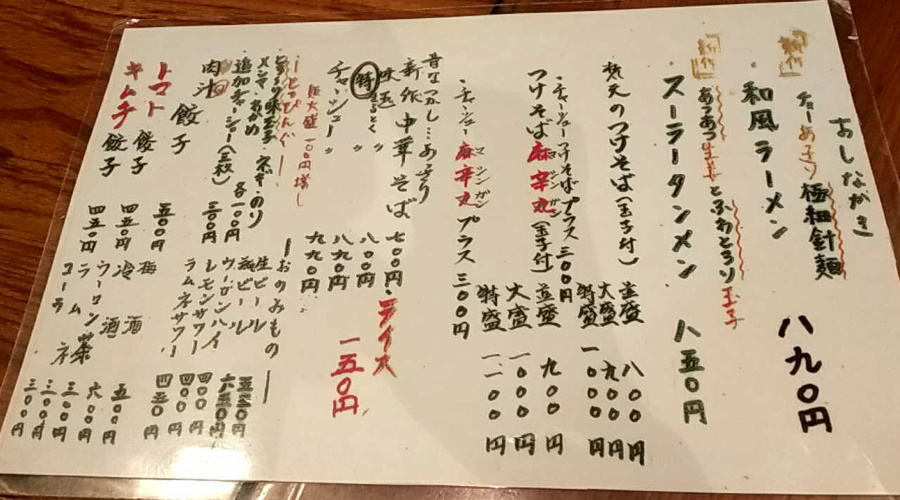 おしながき
新作
チョーあっさり 極細針麺
和風ラーメン 八九〇円
新作
あつあつ生姜とふわとろり玉子
スーラータンメン 八五〇円
梵天のつけそば(玉子付)
並盛 八〇〇円
大盛 九〇〇円
特盛 一〇〇〇円
・チャーシューつけそばプラス三〇〇円
つけそば麻辛丸(玉子付)
マシンガン
並盛 九〇〇円
大盛 一〇〇〇円
特盛 一一〇〇円
・チャーシュー麻辛丸プラス 三〇〇円
マシンガン
昔なつかし…あっさり
新作 中華そば 七〇〇円
味玉 〃 八〇〇円
チャーシュー 〃 八九〇円
特 〃 九九〇円
・ライス 一五〇円
麺大盛一〇〇円増し
ーとっぴんぐー
・とろーり味玉子 ネギ のり
メンマ わかめ 各一〇〇円
追加チャーシュー(三枚) 三〇〇円
肉汁餃子 五〇〇円
トマト餃子 四五〇円
キムチ餃子 四五〇円
ーおのみものー
生ビール 五五〇円
瓶ビール 六五〇円
ウーロンハイ 四〇〇円
レモンサワー 四〇〇円
ラムネサワー 四五〇円
梅酒 五〇〇円
冷酒 六〇〇円
ウーロン茶 三〇〇円
ラムネ 三〇〇円
コーラ 三〇〇円